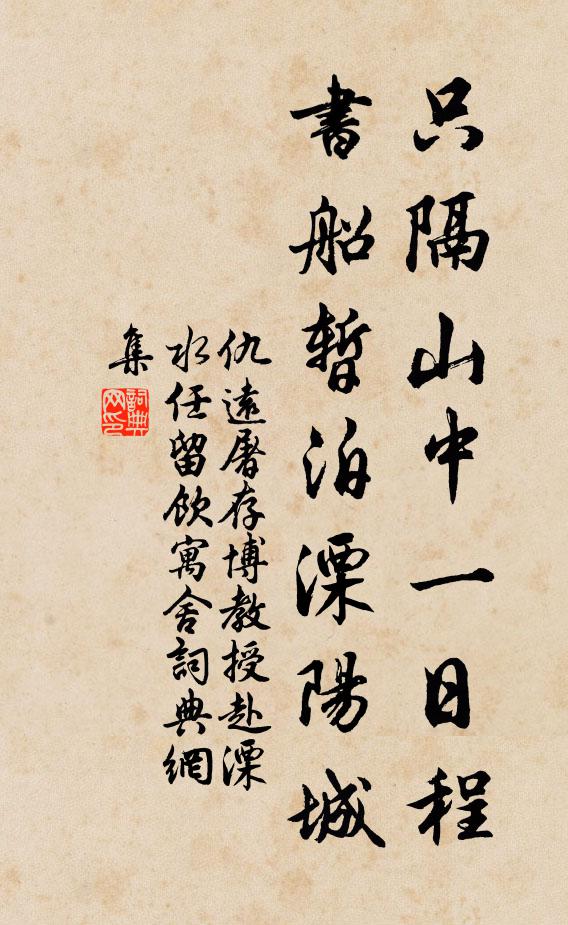 只隔山中一日程
書船暫泊溧陽城
仇遠屠存博教授赴溧
水任留飲寓舍詞典網
集
詞典
网印